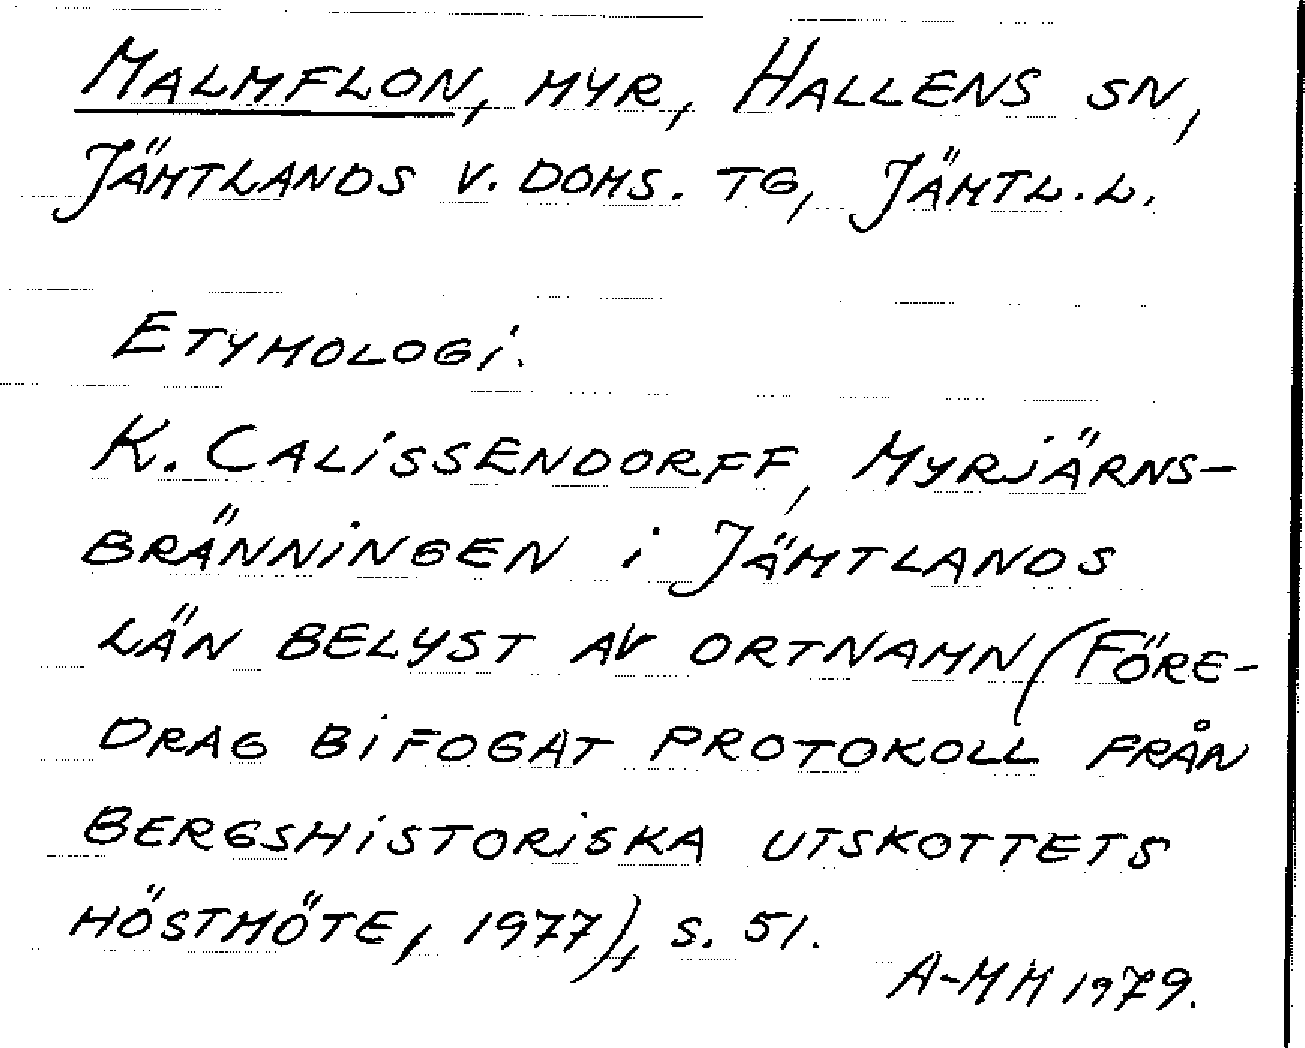 Malmflon, myr, Hallens sn,
Jämtlands v. doms. tg, Jämtl. l.
Etymologi.
K. Calissendorff, Myrjärns-
bränningen i Jämtlands
län belyst av ortnamn (Före-
drag bifogat protokoll från
Bergshistoriska utskottets
höstmöte, 1977), s. 51.
A-MH 1979.